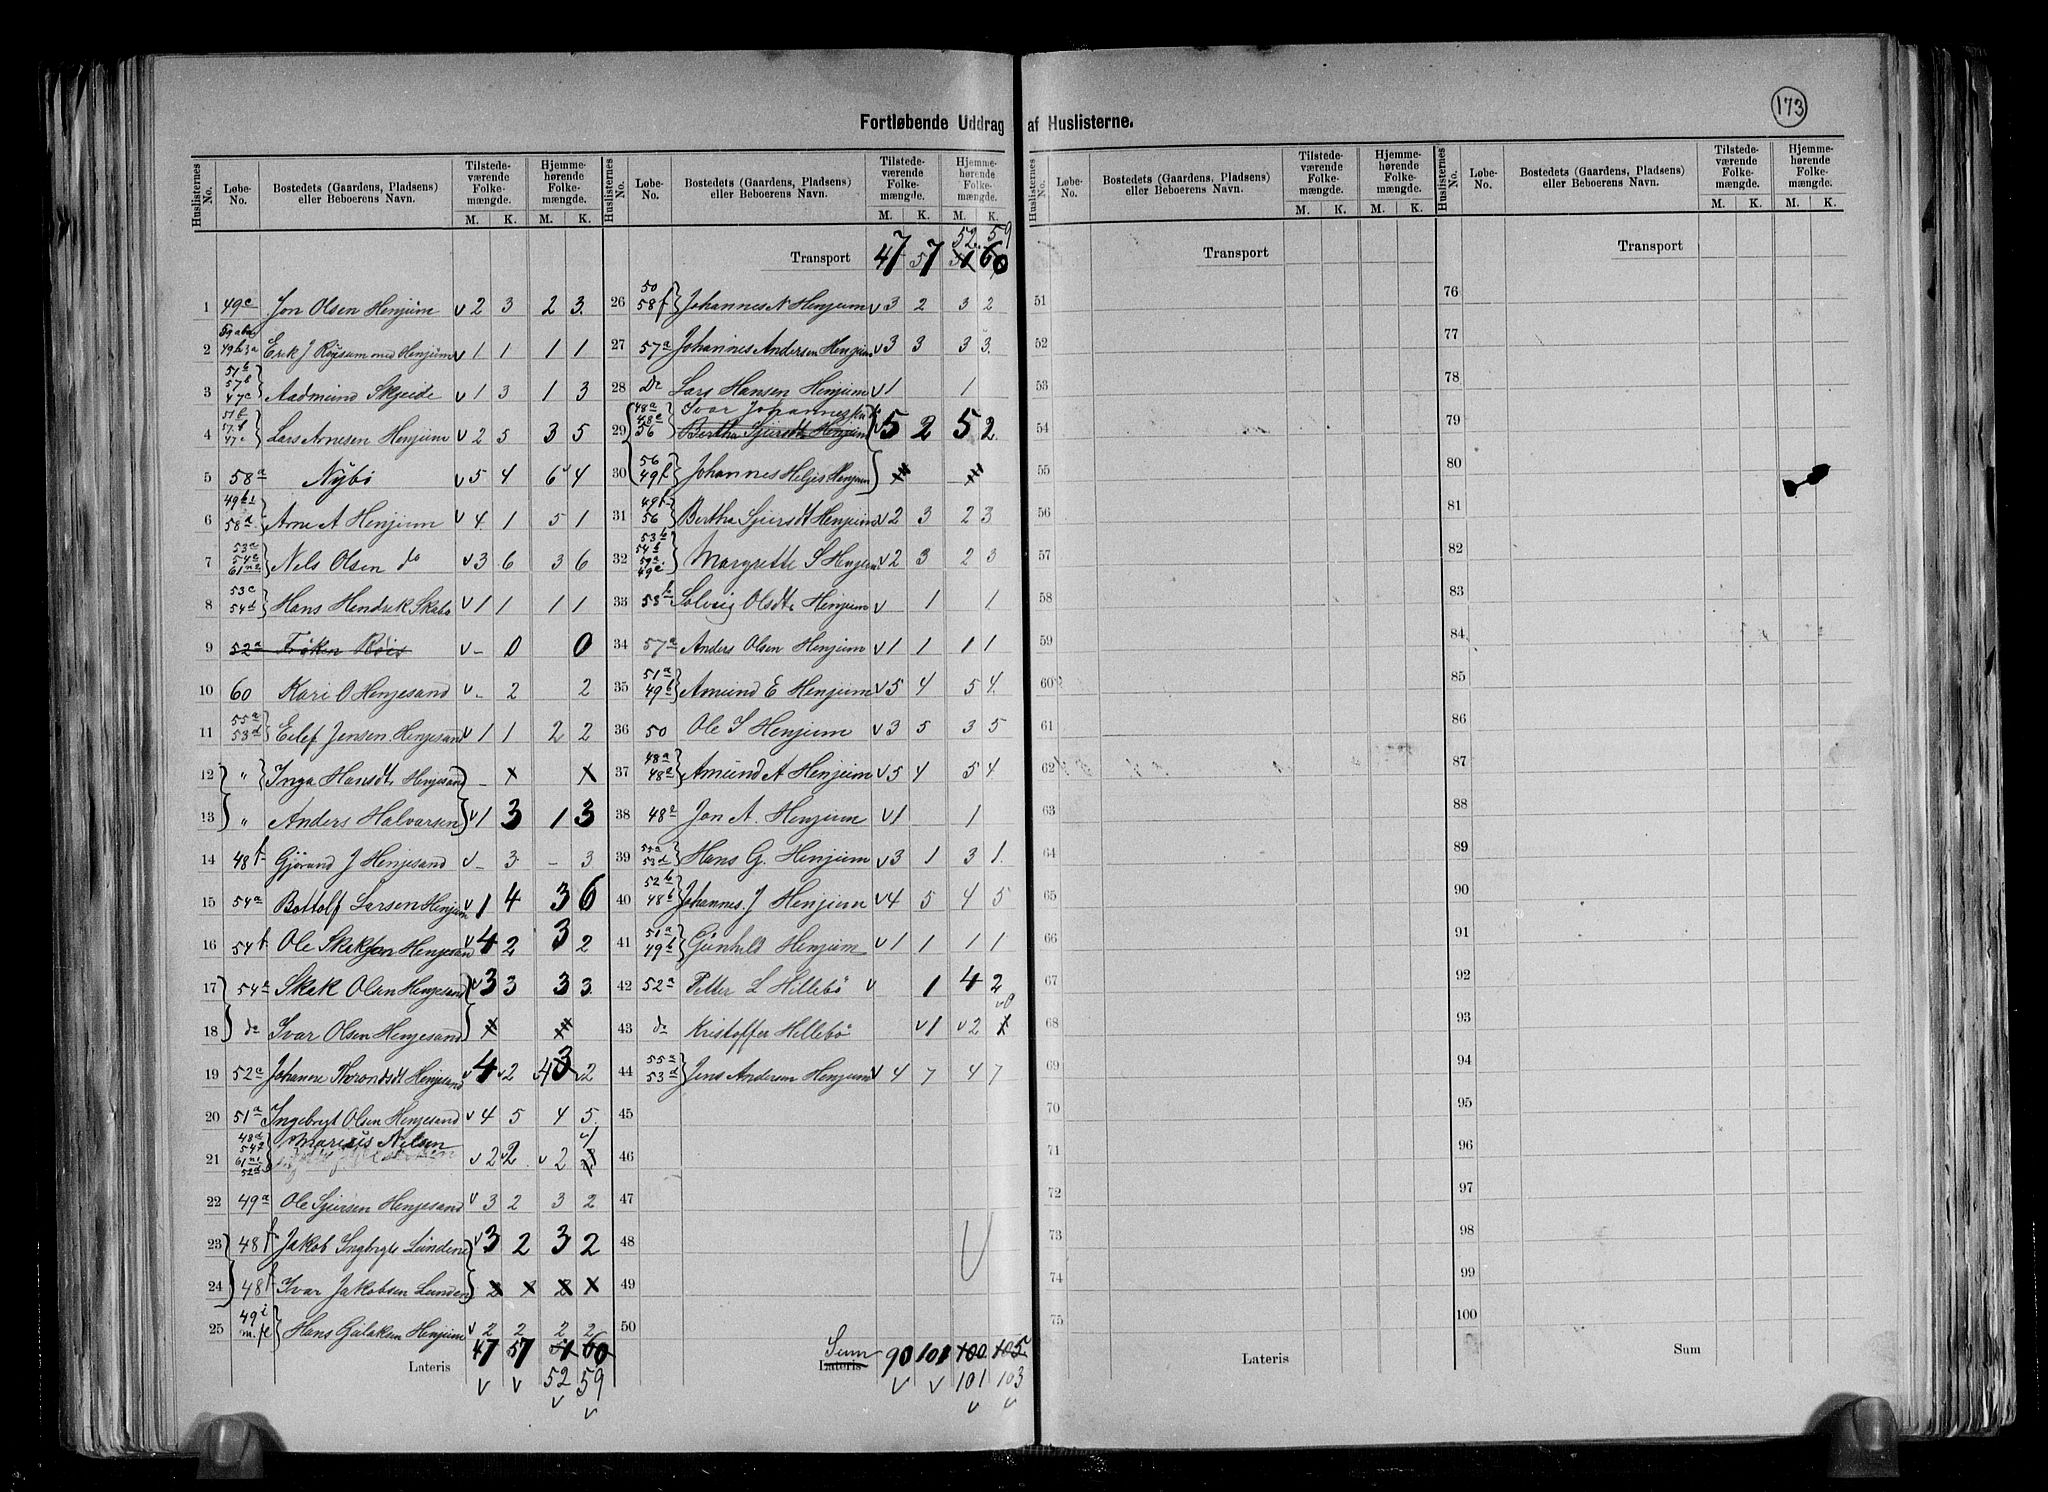 173
Fortløbende Uddrag af Huslisterne.
Huslisternes No. Løbe-No. Bostedets (Gaardens, Pladsens) eller Beboerens Navn. Tilstedeværende Folkemængde. M. K. Hjemmehørende Folkemængde. M. K.
1 49c Jon Olsen Henjum v 2 3 2 3
2 49b 3a Erik J Røysum med Henjum v 1 1 1 1
3 51b 57b 47c Aadmund Skjeide v 1 3 1 3
4 51b 57b 47c Lars Arnesen Henjum v 2 5 3 5
5 58a Nybø v 5 4 6 4
6 49b1 58a Arne A Henjum v 4 1 5 1
7 53a 54c 61n2 Nels Olsen do v 3 6 3 6
8 53c 54d Hans Hendrik Skabo v 1 1 1 1
9 52a v - 0 0
10 60 Kari O Henjesand v - 2 2
11 55a 53d Eilef Jensen Henjesand v 1 1 2 2
12 " Inga Hansdt. Henjesand - x x
13 " Anders Halvarsen v 1 3 1 3
14 48f Gjörund J Henjesand v - 3 - 3
15 54a Bottolf Larsen Henjum v 1 4 3 6
16 54f Ole Henjesand v 4 2 3 2
17 54a Skak Olsen Henjesand v 3 3 3 3
18 do Ivar Olsen Henjesand x x
19 52a Johanne Throndsdt Henjesand v 4 v 2 4 3 v 2
20 51a Ingebrigt Olsen Henjesand v 4 5 4 5
21 48d 54 61n1 52a Marius Nilsen v 2 v 2 v 2 v 1
22 49a Ole Sjursen Henjesand v 3 2 3 2
23 48f Jakob Ingbrigts Lundene v 3 2 3 2
24 48f Ivar Jakobsen Lunden 2 x 2 x
25 49i m. fl Hans Gulaksen Henjum v 2 2 2 2
Lateris 47 57 51 60
v v 52 59
v v
Huslisternes No. Løbe-No. Bostedets (Gaardens, Pladsens) eller Beboerens Navn. Tilstedeværende Folkemængde. M. K. Hjemmehørende Folkemængde. M. K.
52 59
Transport 47 57 51 60
26 50 58f Johannes N Henjum v 3 2 3 2
27 57a Johannes Andersen Henjum v 3 3 3 3
28 Do Lars Hansen Henjum v 1 1
29 48a 48c 56 Ivar Johannes
Bertha Sjursdt Henjum v 5 2 5 2
30 56 49f Johannes Helges Henjum x x
31 49f 56 Bertha Sjursdt Henjum v 2 3 2 3
32 53b 54b 59a 49c Margrette S Henjum v 2 3 2 3
33 53b Solveig Olsdt. Henjum v 1 1
34 57a Anders Olsen Henjum v 1 1 1 1
35 51a 49b Amund E Henjum v 5 4 5 4
36 50 Ole S Henjum v 3 5 3 5
37 48a 48a Amund A Henjum v 5 4 5 4
38 48a Jon A. Henjum v 1 1
39 54a 53d Hans G. Henjum v 3 1 3 1
40 52b 48b Johannes J Henjum v 4 5 4 5
41 51a 49b Gunhild Henjum v 1 1 1 1
42 52a Petter L Hillebö v 1 4 2
43 do Kristoffer Hillebö v 1 v 2 1 v 0
44 55a 53d Jens Andersen Henjum v 4 7 4 7
45
46
47
48
49
50
Sum Lateris 90 101 100 105
v v 101 103
v v
Huslisternes No. Løbe-No. Bostedets (Gaardens, Pladsens) eller Beboerens Navn. Tilstedeværende Folkemængde. M. K. Hjemmehørende Folkemængde. M. K.
Transport
51
52
53
54
55
56
57
58
59
60
61
62
63
64
65
66
67
68
69
70
71
72
73
74
75
Lateris
Huslisternes No. Løbe-No. Bostedets (Gaardens, Pladsens) eller Beboerens Navn. Tilstedeværende Folkemængde. M. K. Hjemmehørende Folkemængde. M. K.
Transport
76
77
78
79
80
81
82
83
84
85
86
87
88
89
90
91
92
93
94
95
96
97
98
99
100
Sum